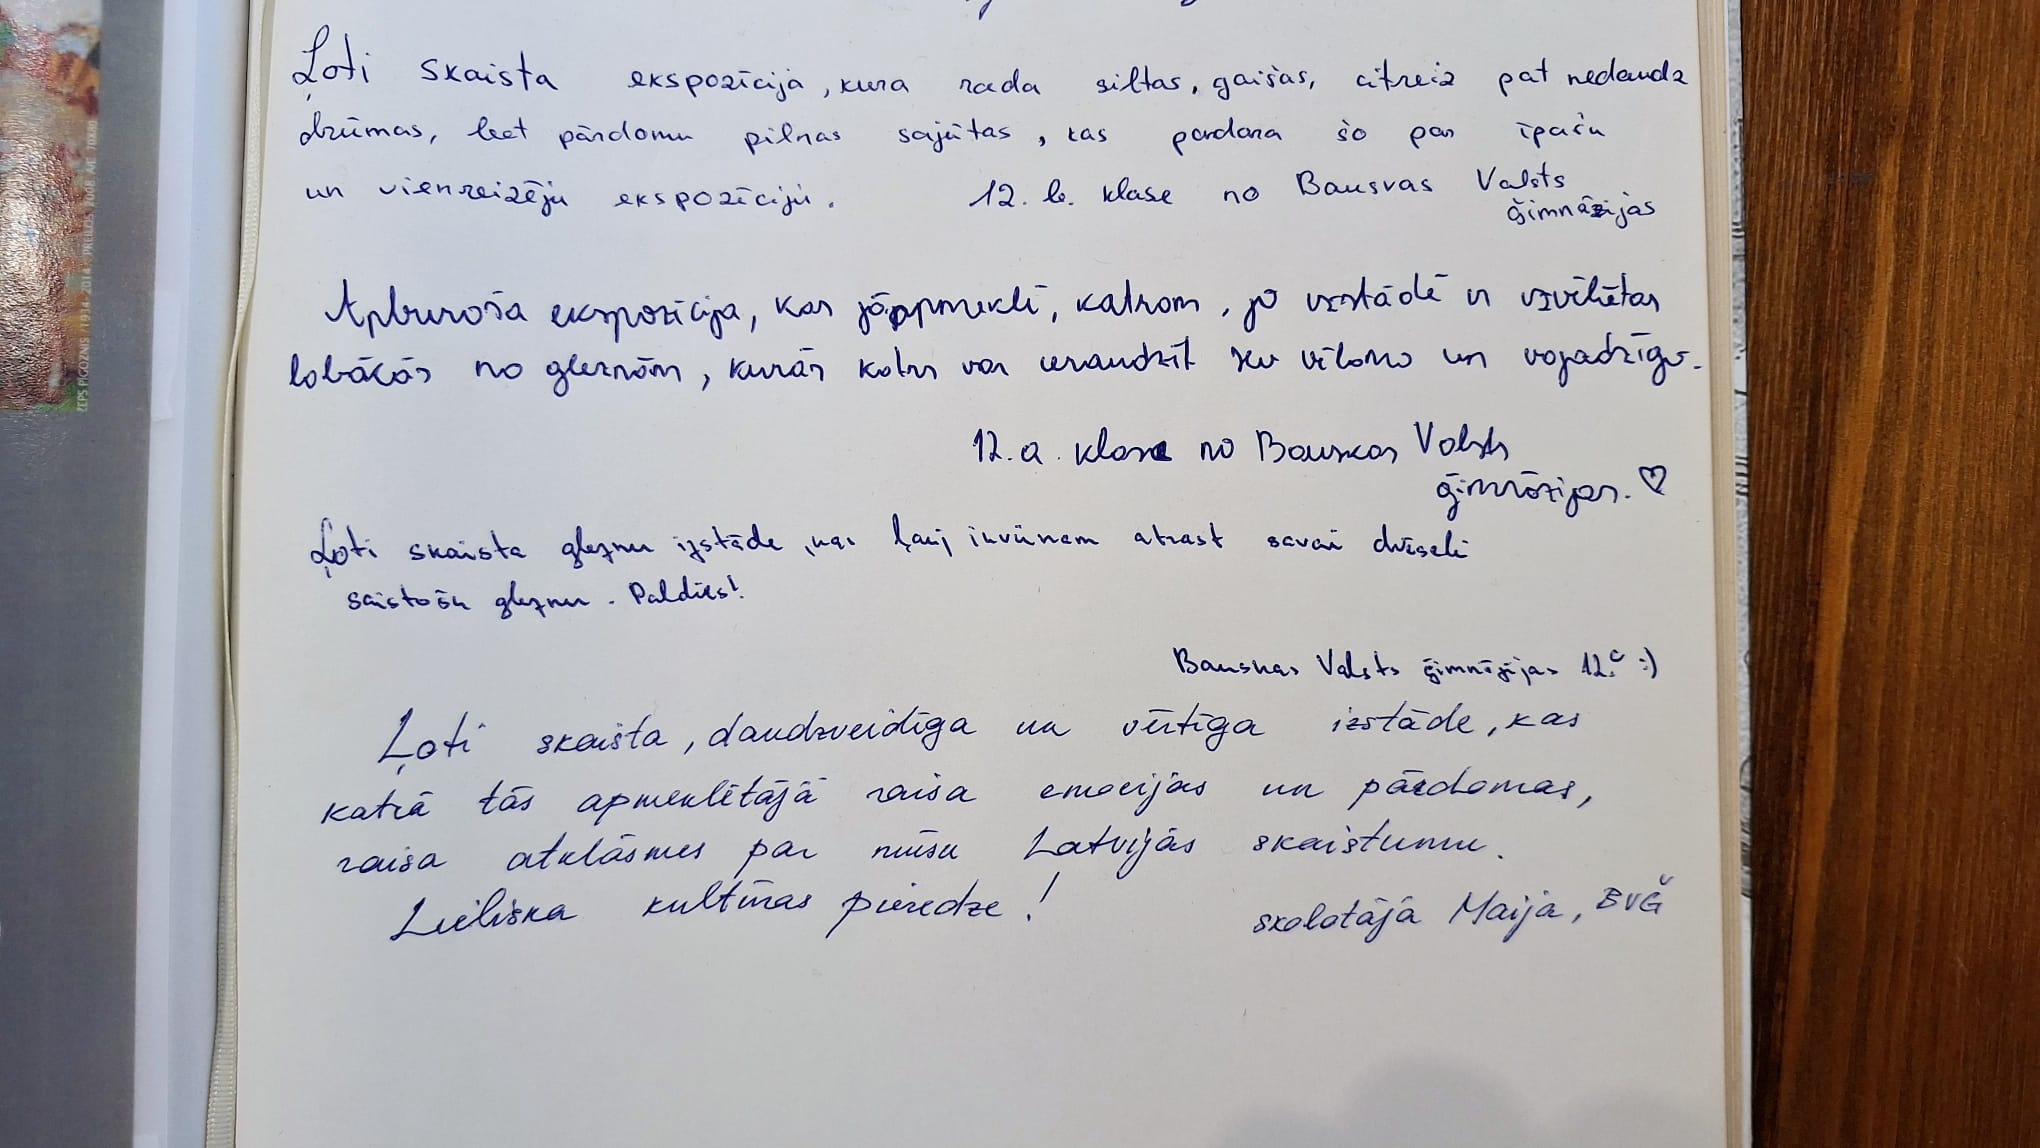 Ļoti skaista ekspozīcija, kura rada siltas, gaišas, citreiz pat nedaudz
drūmas, bet pārdomu pilnas sajūtas, kas padara šo par īpašu
un vienreizēju ekspozīciju. 12. b. klase no Bauskas Valsts
ģimnāzijas
Apburoša ekspozīcija, kas jāapmeklē, katram, jo izstādē ir izvēlētas
labākās no gleznām, kurās katrs var ieraudzīt sev vēlamo un vajadzīgo.
12. a. klase no Bauskas Valsts
ģimnāzijas. ♡
Ļoti skaista gleznu izstāde, kas ļauj ikvienam atrast savai dvēselei
saistošu gleznu. Paldies!
Bauskas Valsts ģimnāzijas 12.c :)
Ļoti skaista, daudzveidīga un vērtīga izstāde, kas
katrā tās apmeklētājā raisa emocijas un pārdomas,
raisa atklāsmes par mūsu Latvijas skaistumu.
Lieliska kultūras pieredze!
skolotāja Maija, BVĢ